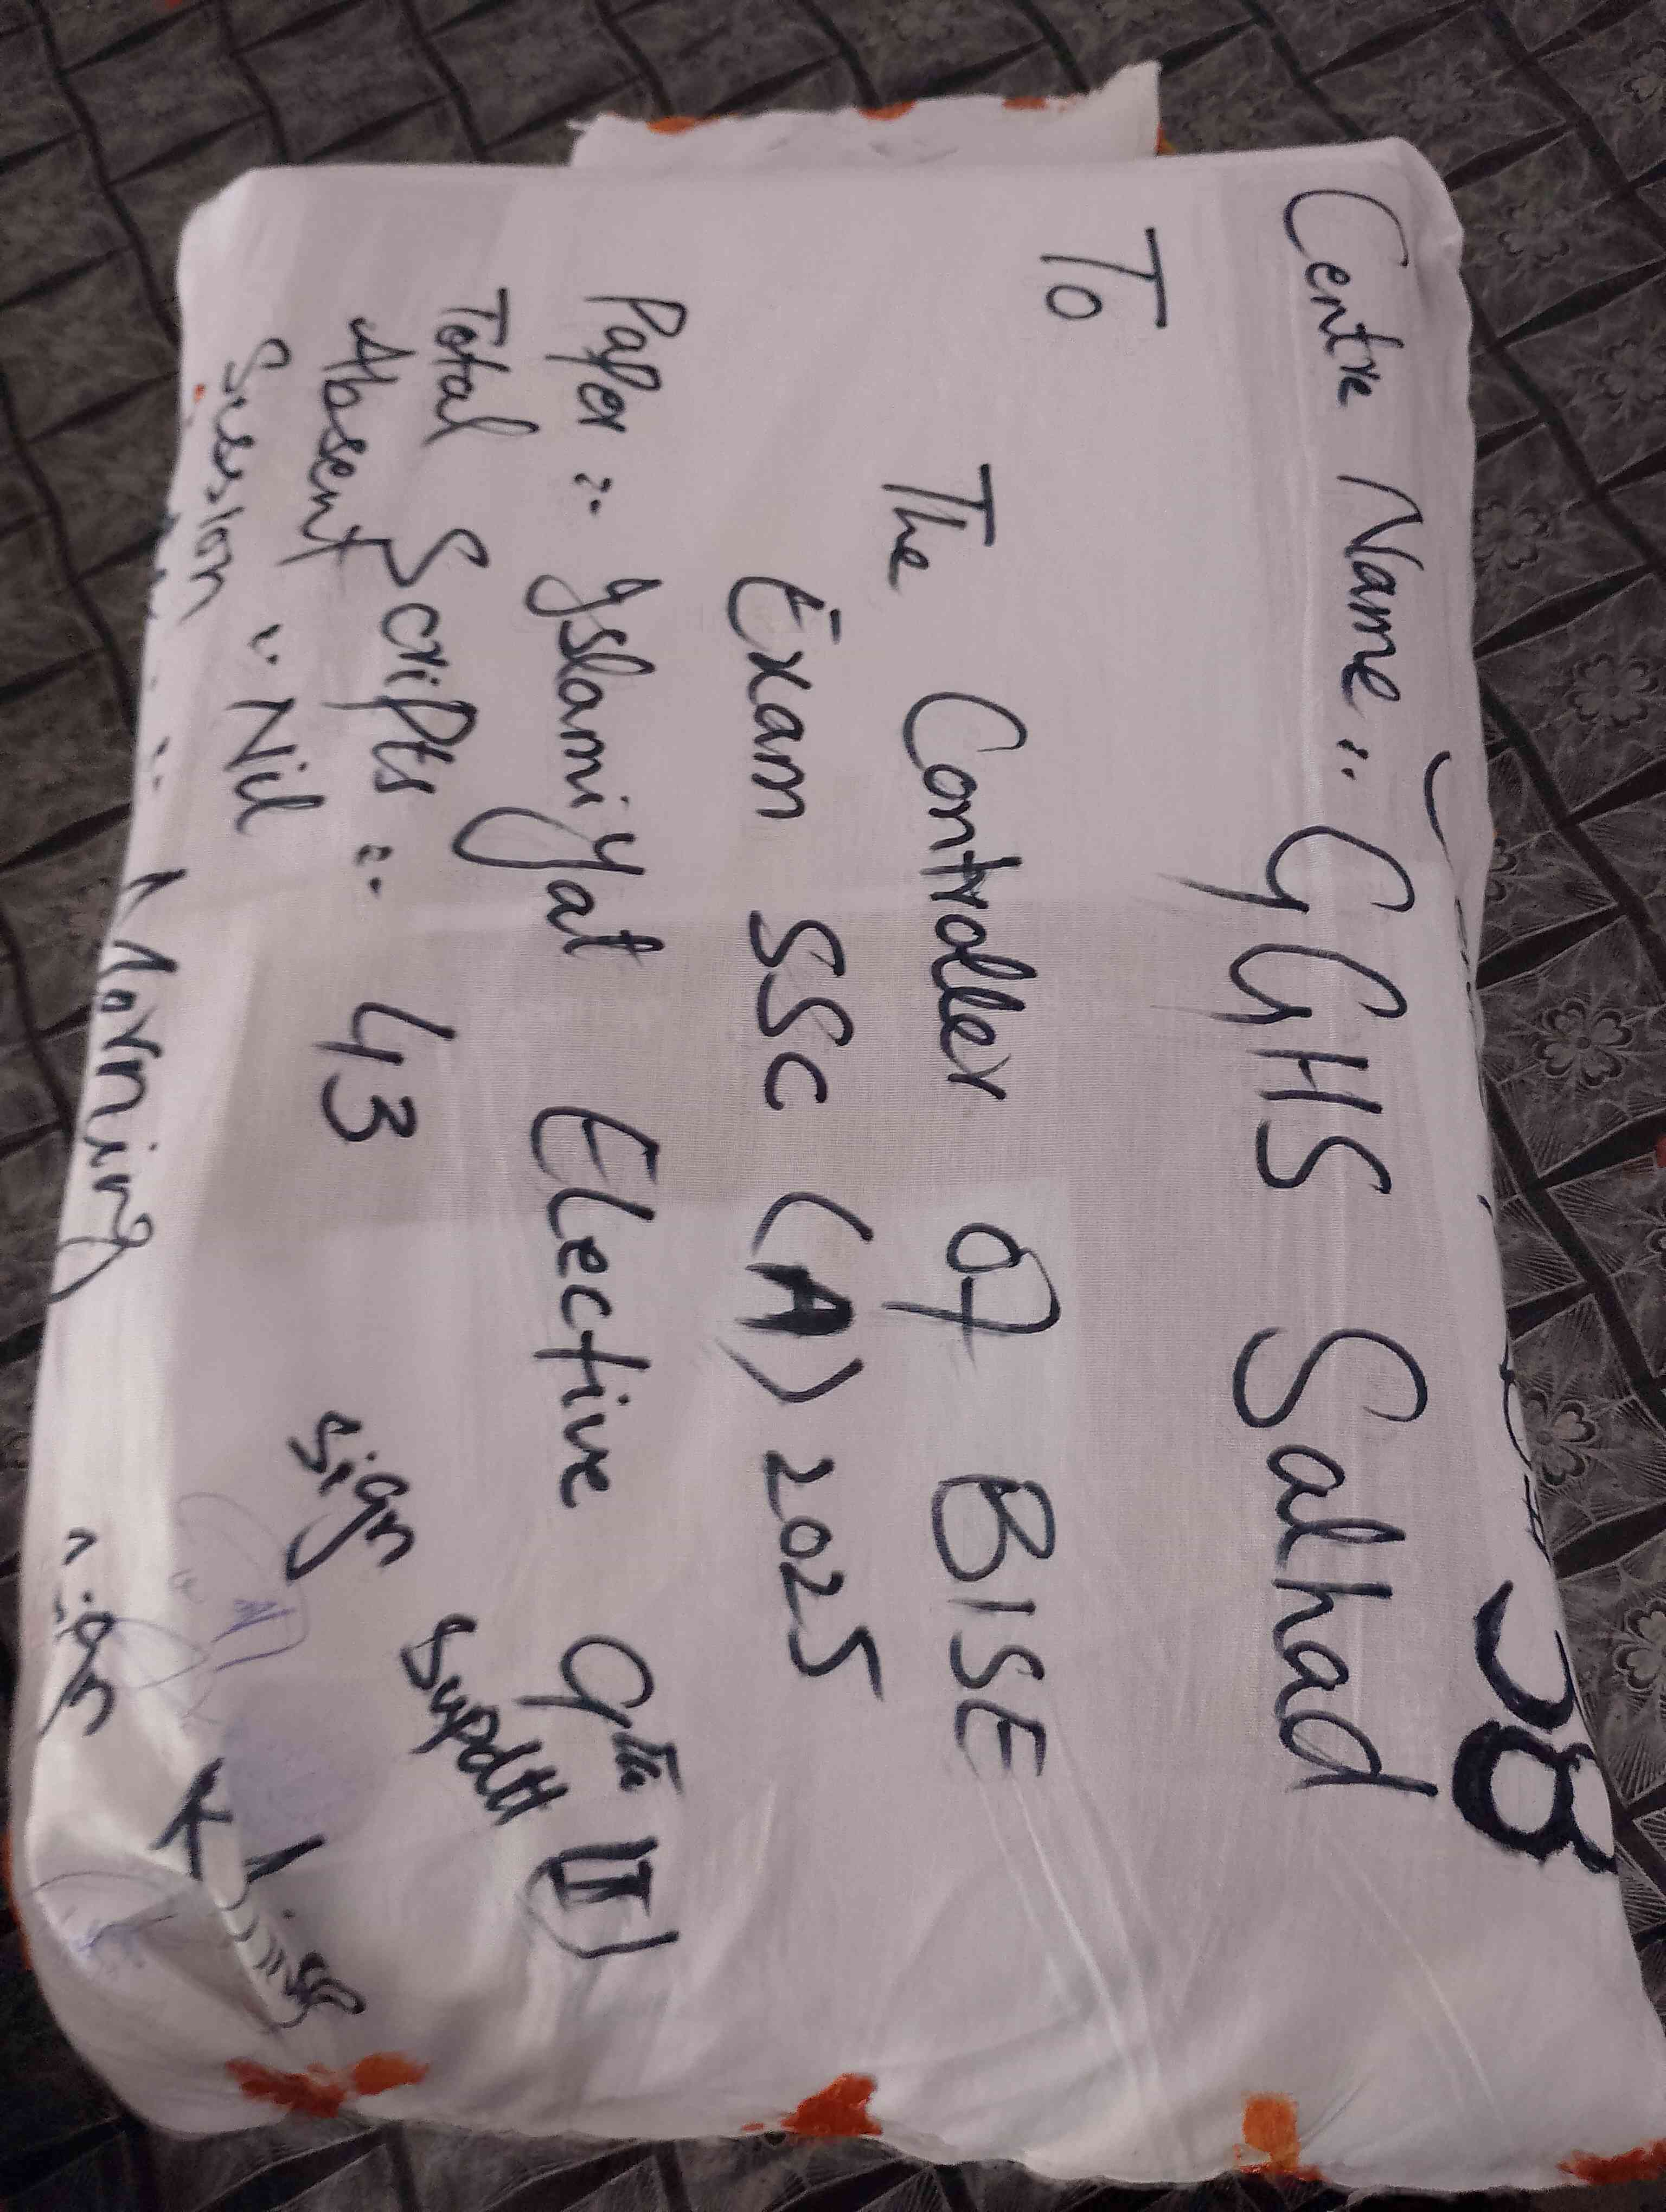 Centre Name :- GGHS Salhad
To
The Controller Of BISE
Exam SSC (A) 2025
Paper :- Islamiyat Elective 9th
Total Scripts :- 43
Absent :- Nil
Session :- Morning
Sign Supdtt